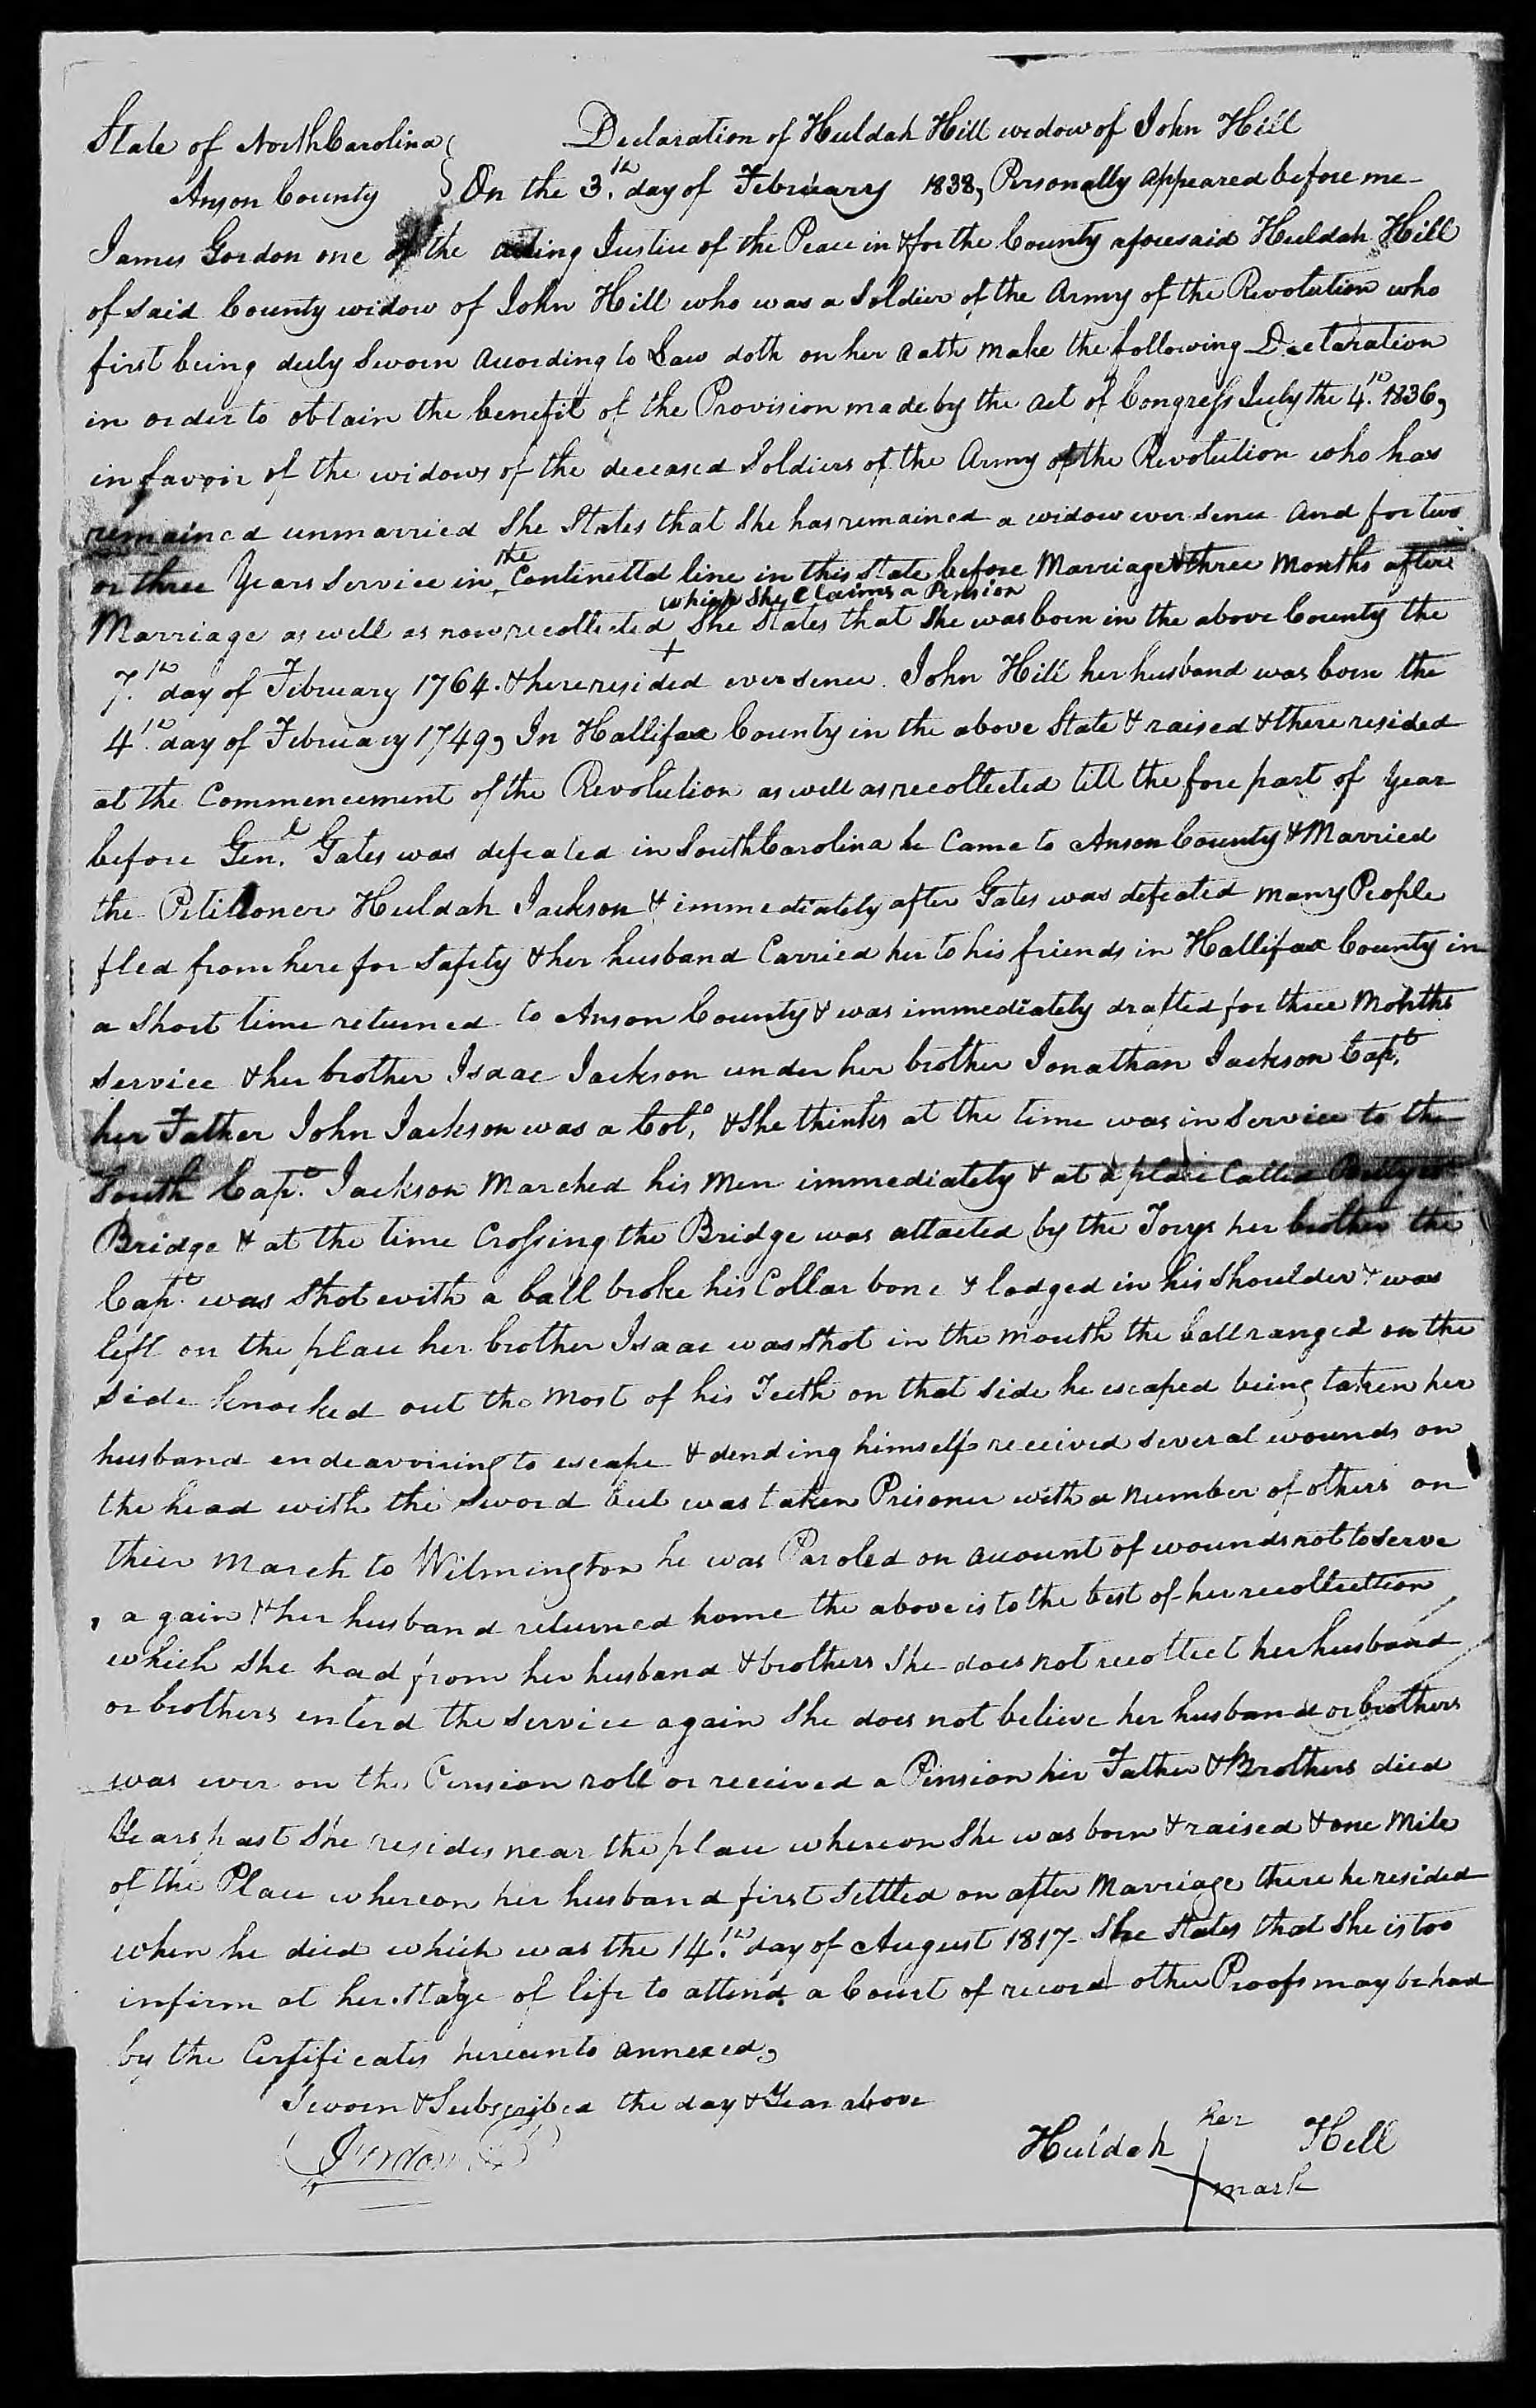 Declaration of Huldah Hill widow of John Hill
State of North Carolina
Anson County } On the 3.th day of February 1838, Personally appeared before me
James Gordon one of the acting Justice of the Peace in & for the County aforesaid Huldah Hill
of said County widow of John Hill who was a Soldier of the Army of the Revolution who
first being duly Sworn according to Law doth on her oath make the following Declaration
in order to obtain the benefit of the Provision made by the act of Congress July the 4.th 1836,
in favour of the widows of the deceased Soldiers of the Army of the Revolution who has
remained unmarried She States that She has remained a widow ever sence and for two
or three Years Service in the Continettal line in this State before Marriage & three Months after
which She Claims a Pension
Marriage as well as now recollected She States that She was born in the above County the
7.th day of February 1764. & here resided ever sence. John Hill her husband was born the
4.th day of February 1749, In Hallifax County in the above State & raised & there resided
at the Commencement of the Revolution as well as recollected till the fore part of Year
before Gen.l Gates was defeated in South Carolina he Came to Anson County & Married
the Petitioner Huldah Jackson & immediately after Gates was defeated many People
fled from here for Safety & her husband Carried her to his friends in Hallifax County in
a Short time returned to Anson County & was immediately drafted for three Months
Service & her brother Isaac Jackson under her brother Jonathan Jackson Cap.t
her Father John Jackson was a Col.o & She thinks at the time was in Service to the
South Cap.t Jackson Marched his Men immediately & at a place Called
Bridge & at the time Crossing the Bridge was attacted by the Torys her brother the
Cap.t was Shot with a ball broke his Collar bone & lodged in his Shoulder & was
left on the place her brother Isaac was Shot in the mouth the ball ranged on the
Side knocked out the Most of his Teeth on that Side he escaped being taken her
husband endeavouring to escape & dending himself received several wounds on
the head with the Sword but was taken Prisoner with a Number of others on
their March to Wilmington he was Paroled on account of wounds not to Serve
again & her husband returned home the above is to the best of her recollection
which She had from her husband & brothers She does not recollect her husband
or brothers enterd the Service again She does not believe her husband or brothers
was ever on the Pension roll or received a Pension her Father & Brothers died
Years past She resides near the place whereon She was born & raised & one Mile
of the Place whereon her husband first Settled on after Marriage there he resided
when he died which was the 14.th day of August 1817 - She States that She is too
infirm at her Stage of life to attend a Court of record other Proofs may be had
by the Certificates hereunto annexed,
Sworn & Subscribed the day & Year above
her
Huldah Hill
mark